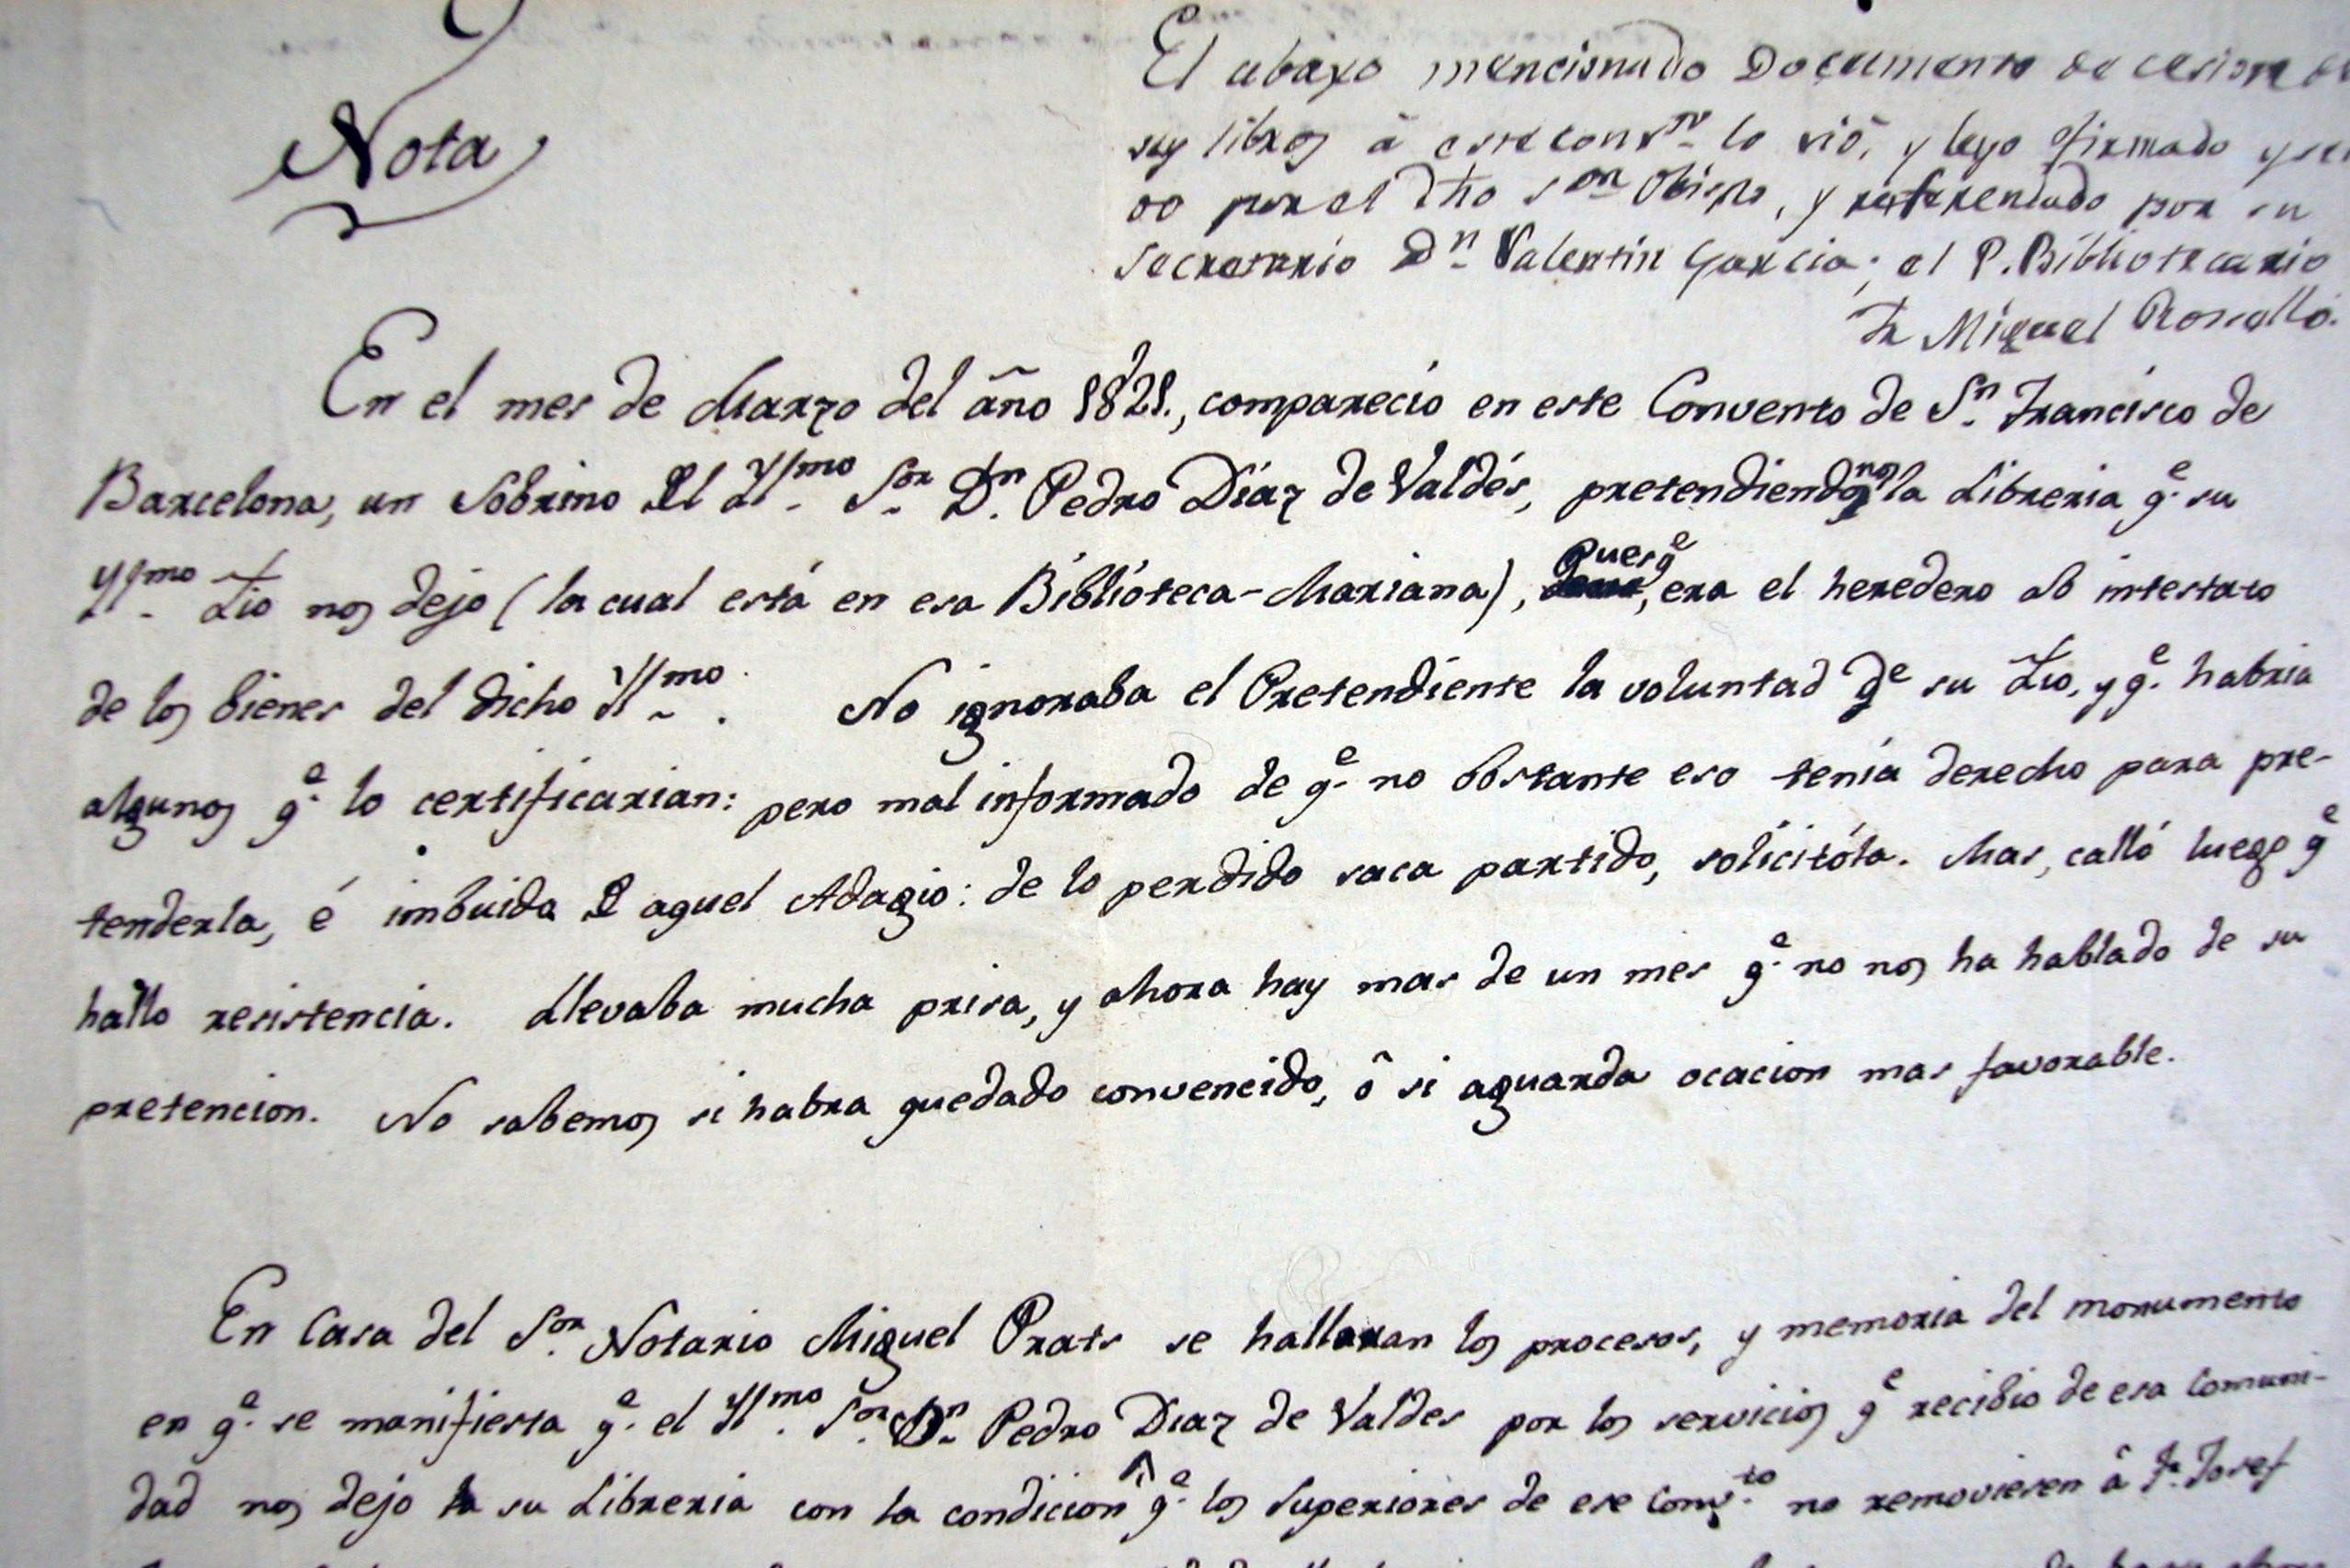 Nota
El abaxo mencionado Documento de cesion de
sus libros â este convto lo vió, y leyo firmado y se
do por el dho Sor Obispo, y referendado por su
Secretario Dn Valentin Garcia; el P. Bibliotecario
Fr Miguel Roselló.
En el mes de Marzo del año 1821., compareció en este Convento de Sn Francisco de
Barcelona, un Sobrino del Yllmo Sor Dn Pedro Díaz de Valdés, pretendiendo la Libreria qe su
Yllmo Tio nos dejo (la cual está en esa Biblióteca-Mariana), Pues qe, era el heredero ab intestato
de los bienes del dicho Yllmo. No ignoraba el Pretendiente la voluntad de su Tio, y qe habria
algunos qe lo certificarian: pero mal informado de qe no obstante eso tenía derecho para pre-
tenderla, é imbuido de aquel Adagio: de lo perdido saca partido, solicitóla. Mas, calló luego qe
hallo resistencia. Llevaba mucha prisa, y ahora hay mas de un mes qe no nos ha hablado de su
pretencion. No sabemos si habra quedado convencido, ô si aguarda ocacion mas favorable.
En Casa del Sor Notario Miguel Prats se hallaran los procesos, y memoria del monumento
en qe se manifiesta qe el Yllmo Sor Dn Pedro Diaz de Valdes por los servicios qe recibio de esa Comuni-
dad nos dejo su Libreria con la condicion qe los Superiores de ese Convto no removiesen â Fr Josef